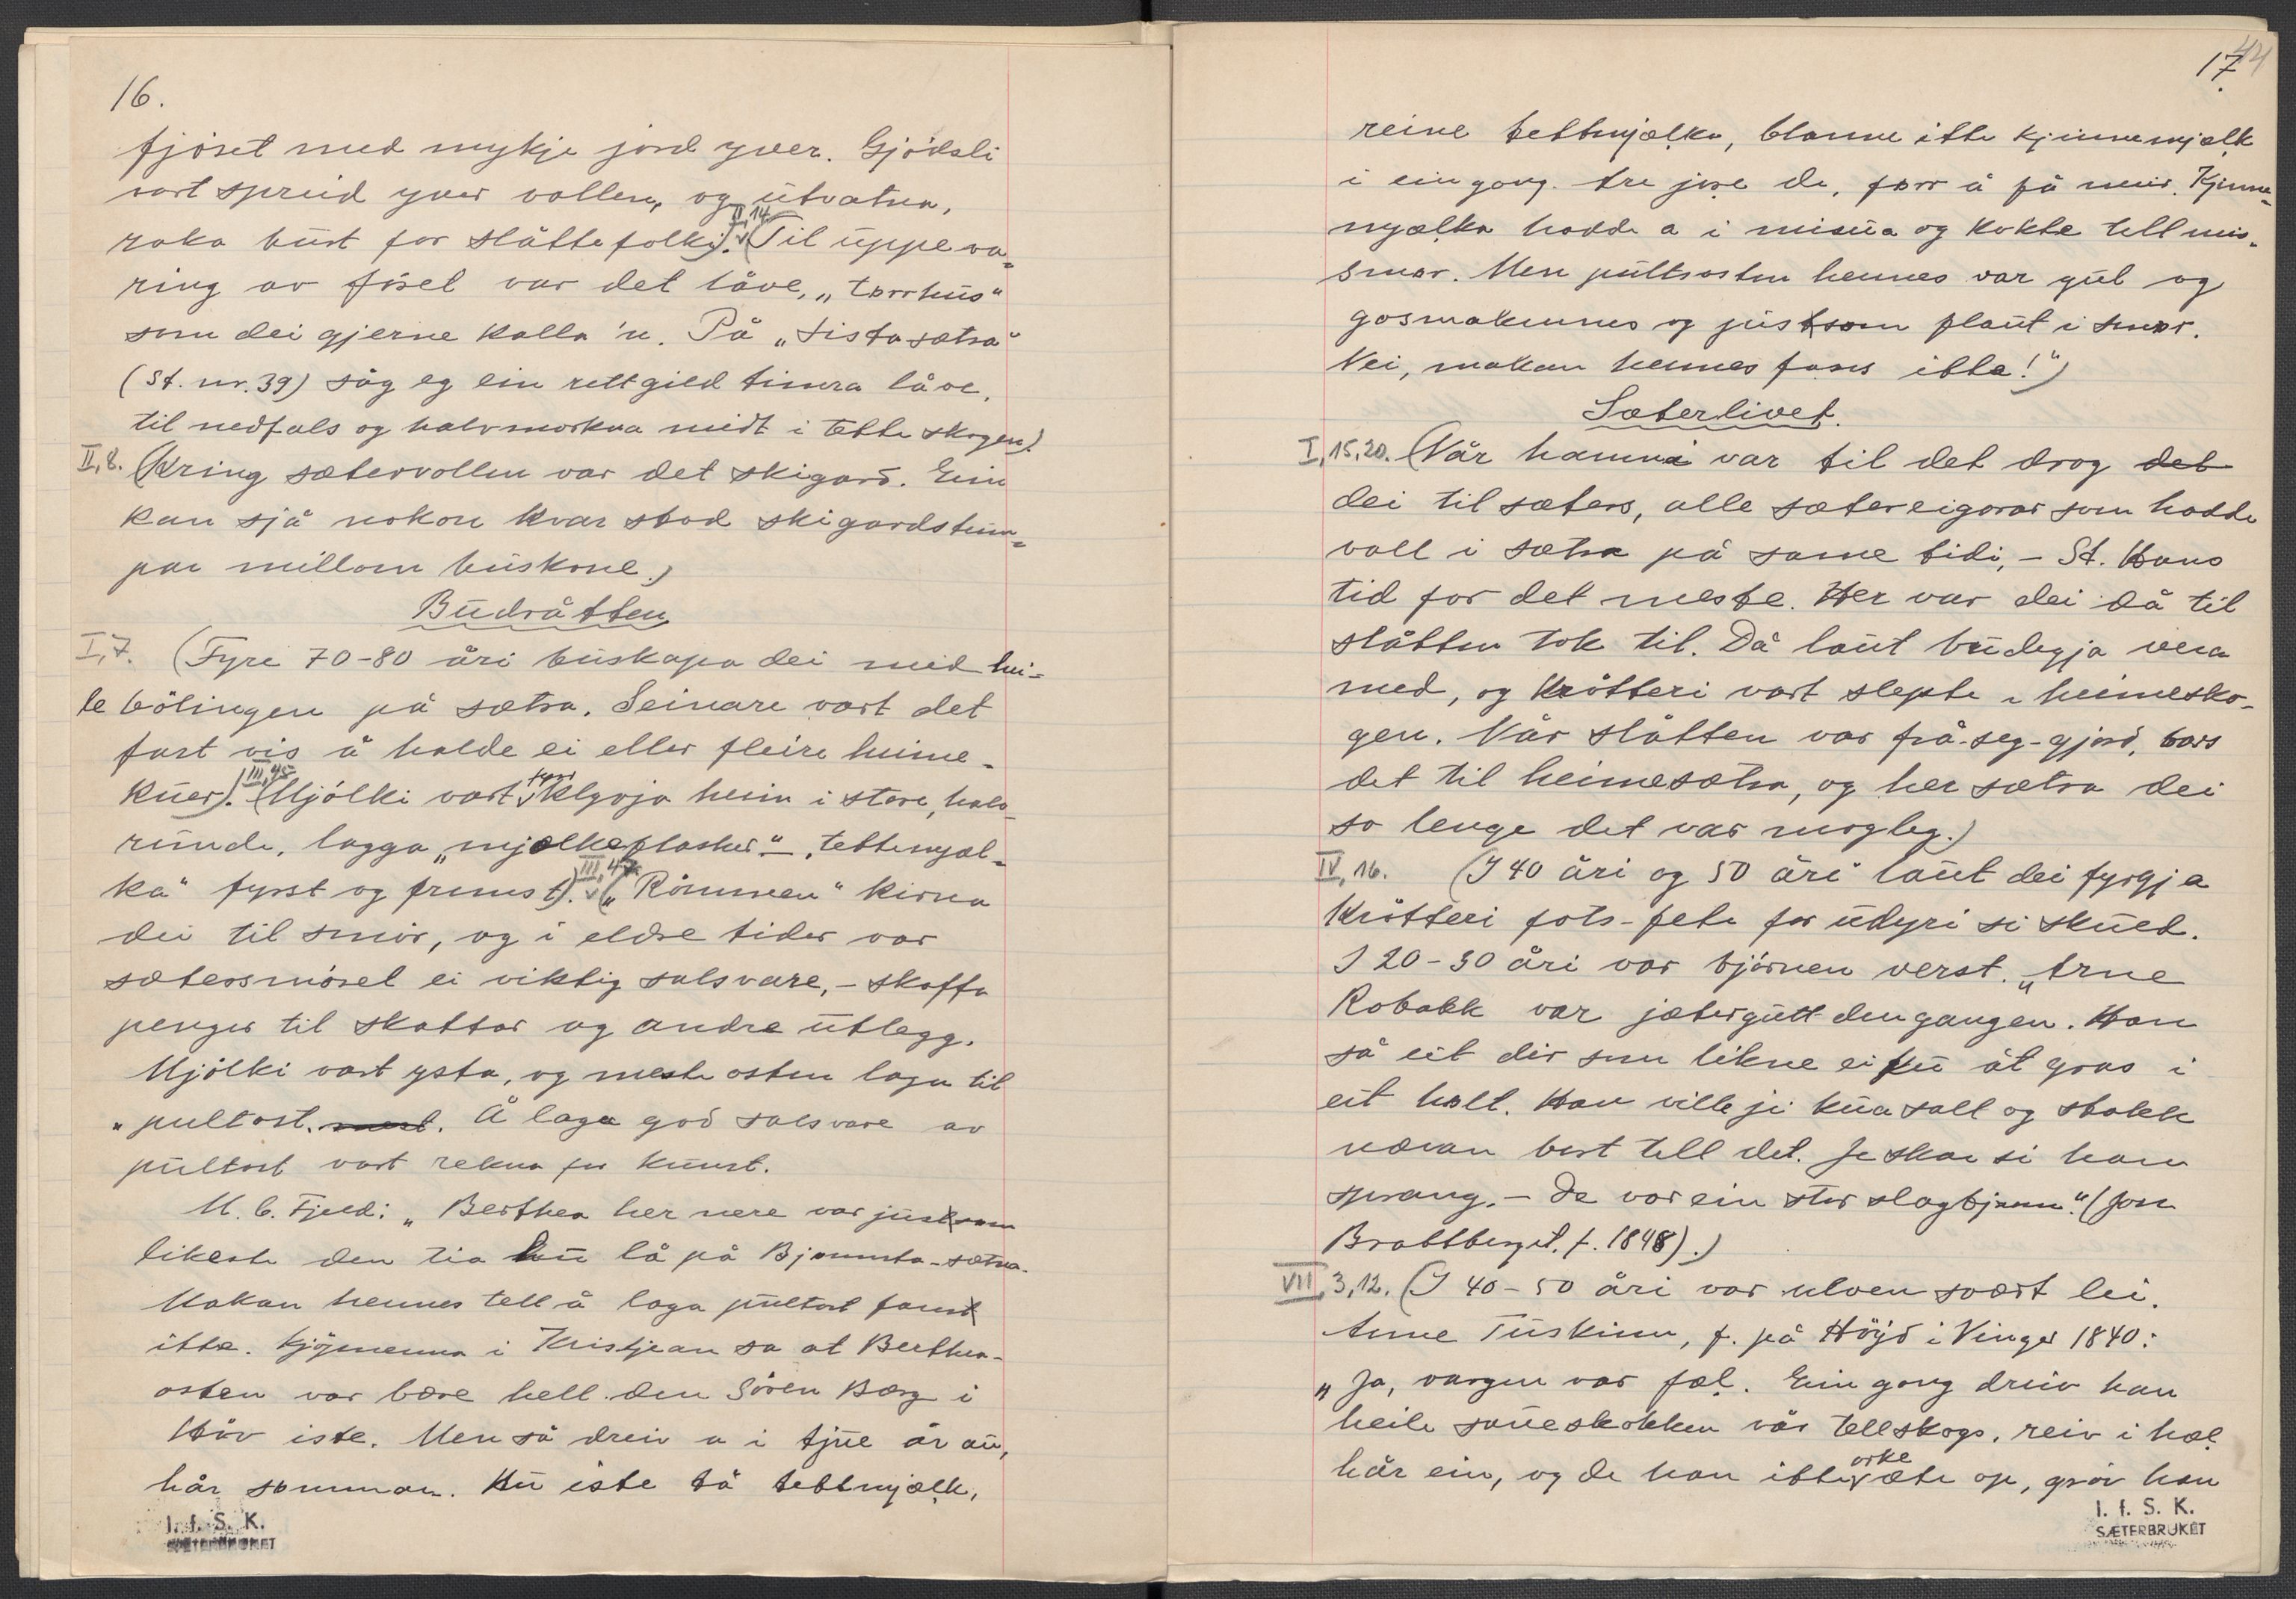 16.
fjöset med mykje jord yver. Gjödsli
vart spreid yver vollen, og utvatna,
raka burt for slåttefolki). II,14. (Til uppeva-
ring av fôret var det låve, „tørrhus“
som dei gjerne kalla 'n. På „Sistasætra“
(St. nr. 39) såg eg ein rett gild timra låve,
til nedfals og halvmorkna midt i tette skogen).
II, 8. (Kring sætervollen var det skigard. Ein
kan sjå nokon kvar stod skigardstum-
par millom buskone.)
Budråtten
I, 7. (Fyre 70-80 åri buskapa dei med hei-
le bölingen på sætra. Seinare vart det
fast vis å halde ei eller fleire heime-
kuer). III,45 (Mjölki vart fyrr klyvja heim i store, halv-
runde, lagga „mjælkeflasker“ - „tettemjæl-
ka“ fyrst og fremst). III,47. („Römmen“ kirna
dei til smör, og i eldre tider var
sætersmöret ei viktig salsvare, - skaffa
penger til skattar og andre utlegg.
Mjölki vart ysta, og meste osten laga til
„pultost. mest. Å laga god salsvare av
pultost vart rekna for kunst.
M. C. Fjeld: „Berthea her nere var just som
likeste den tia hu lå på Bjønnsta-sætra.
Makan hennes tell å laga pultost fanst
itte. Kjöpmenna i Kristjean sa at Berthea-
osten var bære hell den Sören Berg i
Höv iste. Men så dreiv a i tjue år au,
hår sommar. Hu iste tå tettmjælk,
I. f. S. K.
SÆTERBRUKET
17.
44
reine tettmjælka, blanne itte kjinnemjælk
i ein gong. Are jore de, forr å få meir. Kjinne-
mjælka hadde a i misua og kokte tell mis-
smør. Men pultosten hennes var gul og
gosmakennes og just som flaut i smør.
Nei, makan hennes fanns itte!“)
Sæterlivet.
I, 15, 20. (Når hamna var til det drog det
dei til sæters, alle sætereigarar som hadde
voll i sætra på same tidi, - St. Hans
tid for det meste. Her var dei då til
slåtten tok til. Då laut budegja vera
med, og kröteri vart slepte i heimesko-
gen. Når slåtten var frå-seg-gjord, bars
det til heimesætra, og her sætra dei
so lenge det var mogleg.)
IV, 16. (I 40 åri og 50 åri laut dei fyrgja
krötteri fots-fete for udyri si skued.
I 20-30 åri var björnen verst. „Arne
Robakk var jætergutt dengangen. Han
så eit dir som likne ei ku åt gras i
eit holt. Han ville ji kua salt og stakk
nævan bort tell det. Je skar si han
sprang. - De var ein stor slagbjønn“. (Jon
Brattberget, f. 1848).)
VII, 3, 12. (I 40-50 åri var ulven svært lei.
Anne Tuskinn, f. på Höyd i Vinger 1840:
„Ja, vargen var fæl. Ein gong dreiv han
heile saueskokken vår tell skogs, reiv i hæl
hår ein, og de han itte orke æte op, gröv han
I. f. S. K.
SÆTERBRUKET